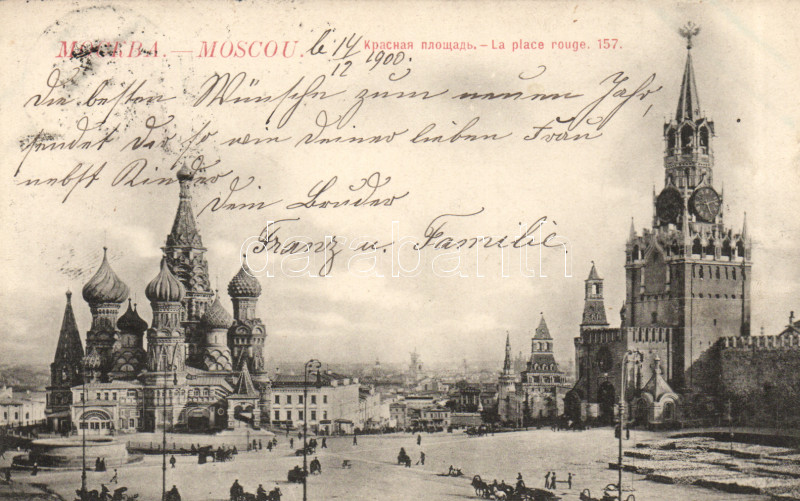 МОСКВА. — MOSCOU.
Красная площадь. - La place rouge. 157.
le 14/12 1900.
Die besten Wünsche zum neuen Jahr,
sendet Dir so wie Deiner lieben Frau
nebst Kinder
Dein Bruder
Franz u. Familie
darabanth.com